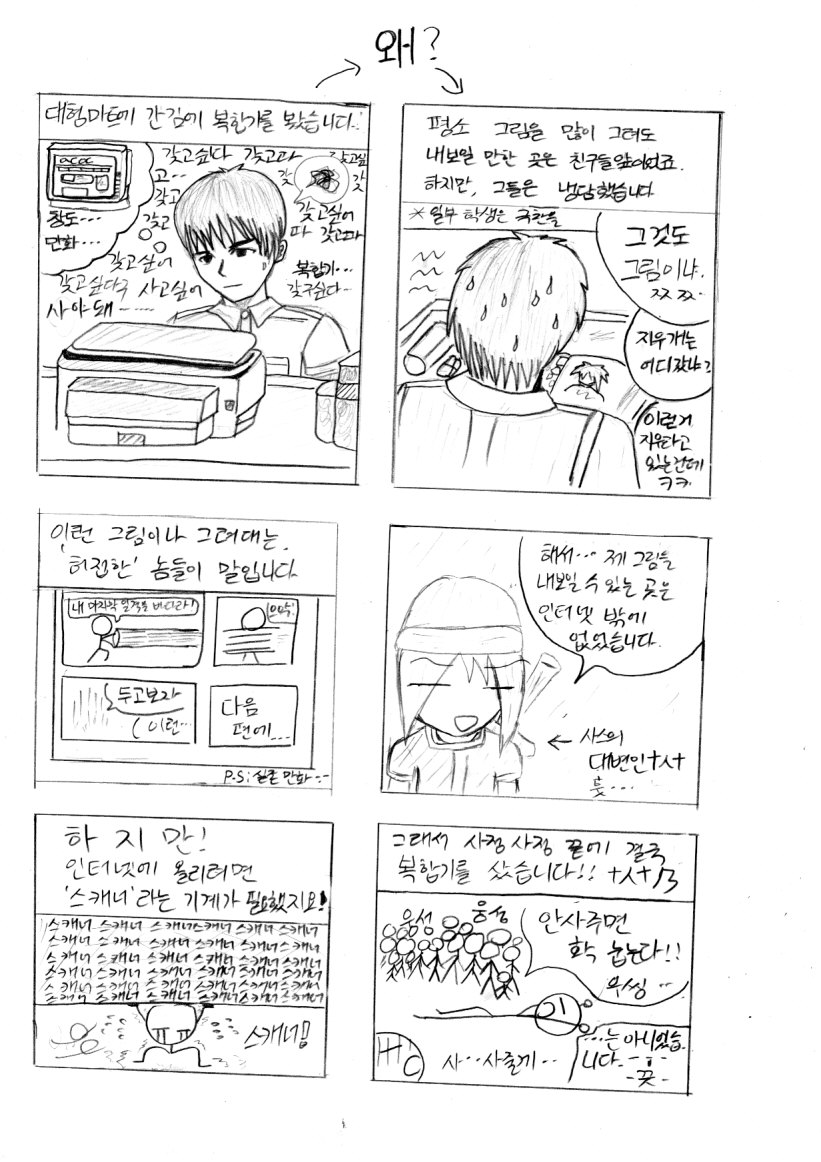 왜?
대형마트에 간김에 복합기를 봤습니다.
창도...
만화...
갖고싶다 갖고파
고...
갖고
갖고
갖고싶어
갖고싶다구 사고싶어
사야돼...
갖고싶
갖
갖
갖고싶어
파 갖고파
복합기...
갖구싶다...
평소 그림을 많이 그려도
내보일 만한 곳은 친구들앞이었죠.
하지만, 그들은 냉담했습니다
*일부 학생은 극찬을
그것도
그림이냐.
ㅉㅉ..
지우개는
어디갔냐?
이런거
지우라고
있는건데
ㅋㅋ.
이런 그림이나 그려대는
'허접한' 놈들이 말입니다
내 마지막 일격을 받아라!
으악.
두고보자
이런...
다음
편에...
P.S: 실존 만화 -.-
해서... 제 그림을
내보일 수 있는 곳은
인터넷 밖에
없었습니다.
← 사스의
대변인ㅅ
훗...
하 지 만!
인터넷에 올리려면
'스캐너'라는 기계가 필요했지요!
스캐너 스캐너 스캐너 스캐너 스캐너 스캐너
스캐너 스캐너 스캐너 스캐너 스캐너 스캐너
스캐너 스캐너 스캐너 스캐너 스캐너 스캐너
스캐너 스캐너 스캐너 스캐너 스캐너 스캐너
스캐너 스캐너 스캐너 스캐너 스캐너 스캐너
스캐너 스캐너 스캐너 스캐너 스캐너 스캐너
스캐너!
그래서 사정사정 끝에 결국
복합기를 샀습니다!!
웅성 웅성
안사주면
확 눕는다!!
우씽..
사...사줄게..
...는 아니었습
니다.
-끗-